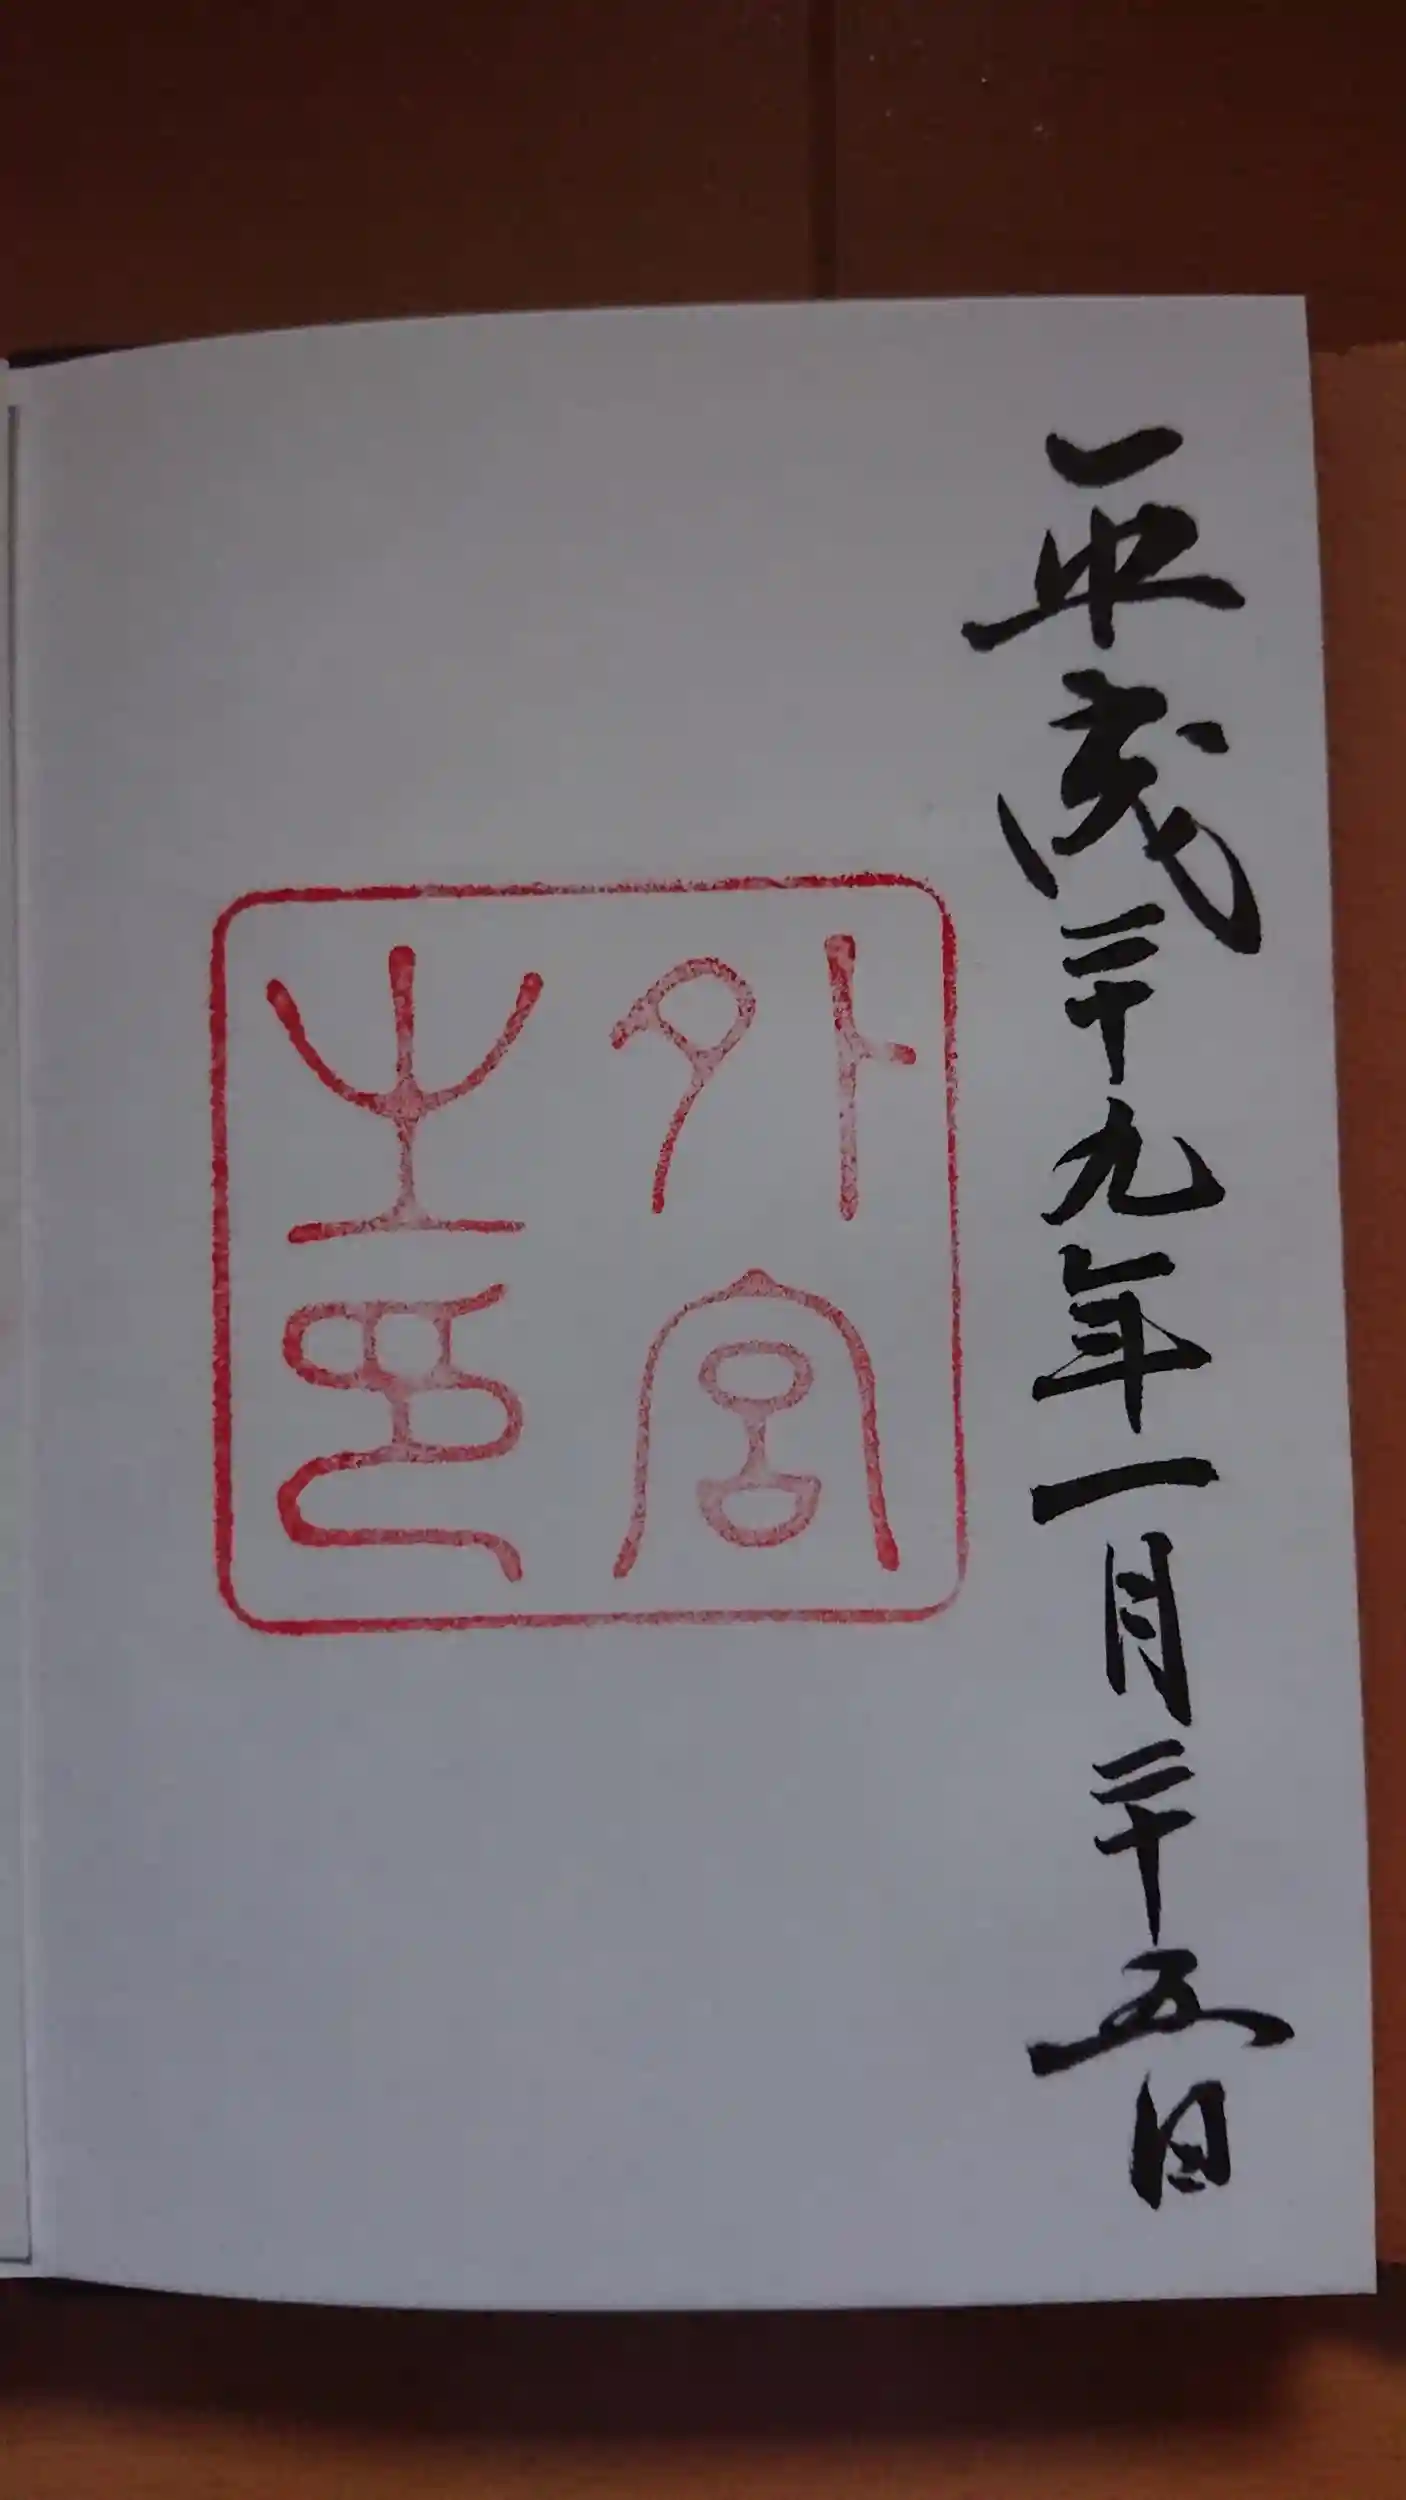 平成二十九年一月二十五日
外宮
之印